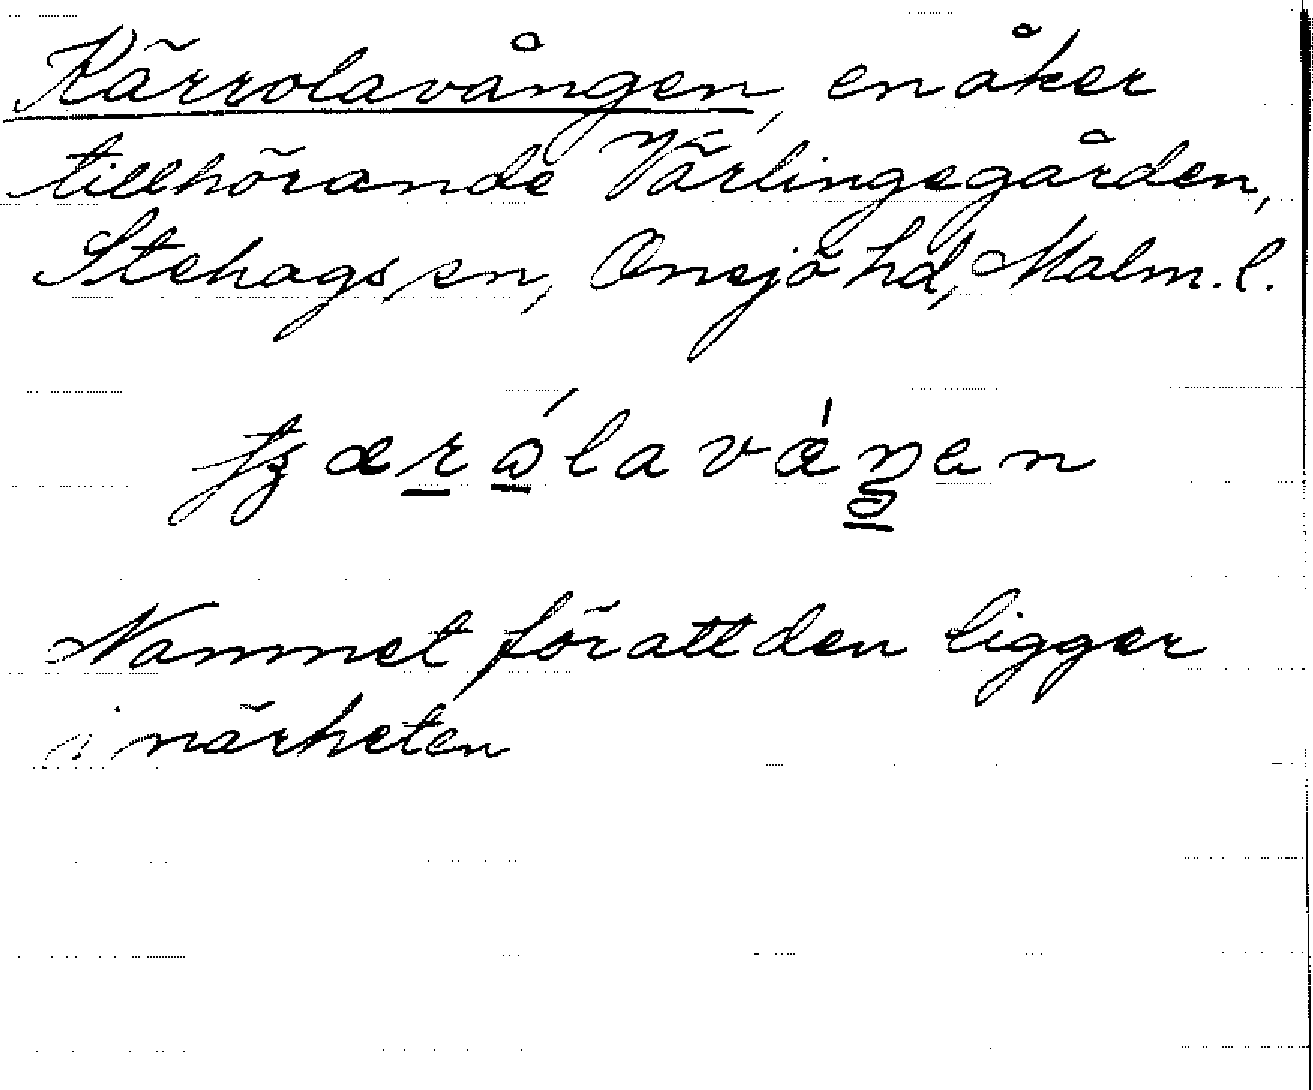 Kärrolavången, en åker
tillhörande Värlingegården,
Stehags sn, Onsjö hd, Malm. l.
Namnet för att den ligger
i närheten